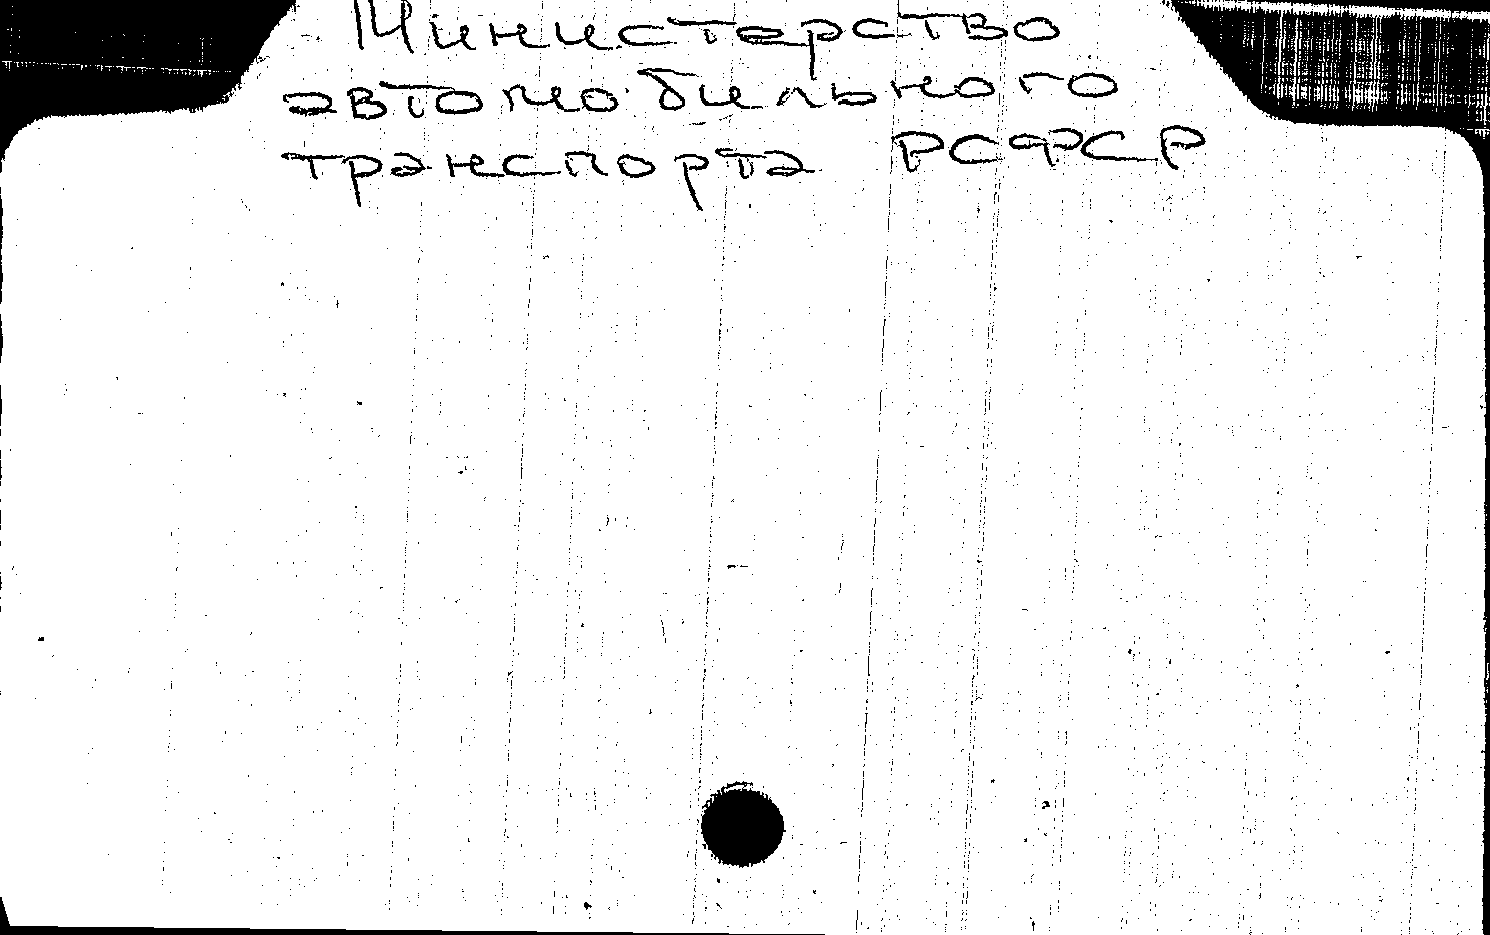 Министерство
автомобильного
транспорта РСФСР